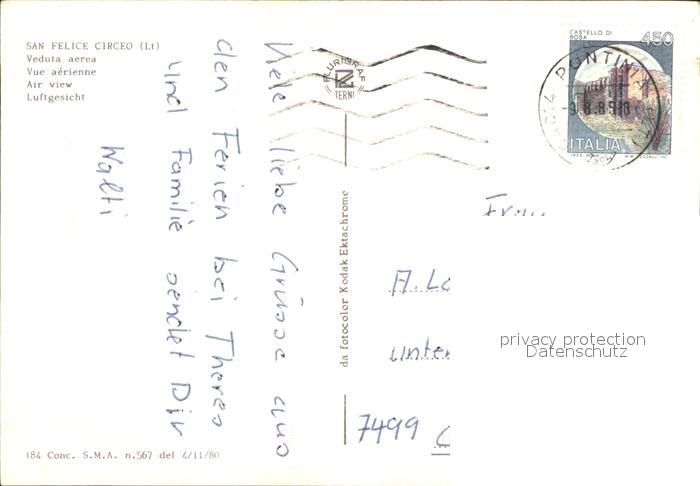 SAN FELICE CIRCEO (Lt)
Veduta aerea
Vue aérienne
Air view
Luftgesicht
Viele liebe Grüsse aus
den Ferien bei Theres
und Familie sendet Dir
Walti
184 Conc. S.M.A. n.567 del 4/11/80
PLURIGRAF
TERNI
da fotocolor Kodak Ektachrome
CASTELLO DI
ROSA
450
ITALIA
04014 PONTINIA
Frau
A. Lo
unter
7499
privacy protection
Datenschutz